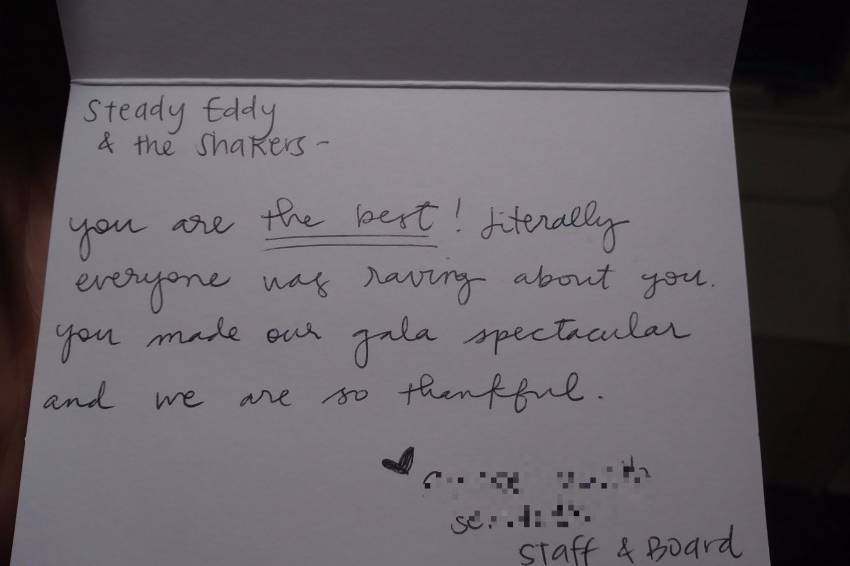 Steady Eddy
& the Shakers -
you are the best! Literally
everyone was raving about you.
you made our gala spectacular
and we are so thankful.
Staff & Board